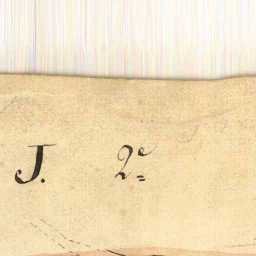 J. 2e